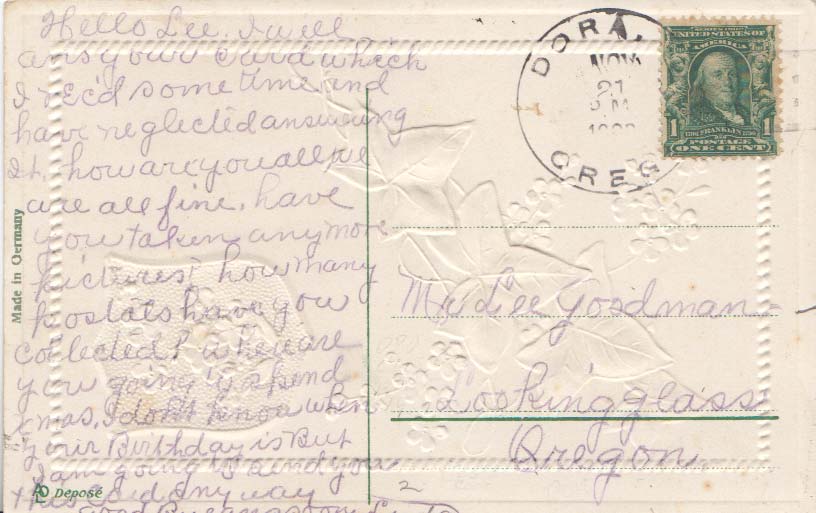 Hello Lee. I will
ans your card which
I rec'd some time and
have neglected answering
It. how are you all we
are all fine. have
you taken any more
pictures? how many
postals have you
collected? where are
you going to spend
xmas. I don't know when
your Birthday is But
I am going to send you
this Card any way
Good By
Made in Germany
Deposé
2
DORA,
NOV
21
M
OREG
SERIES 1902
UNITED STATES OF
AMERICA
1 FRANKLIN 1
POSTAGE
ONE CENT
Mr Lee Goodman
Lookingglass
Oregon